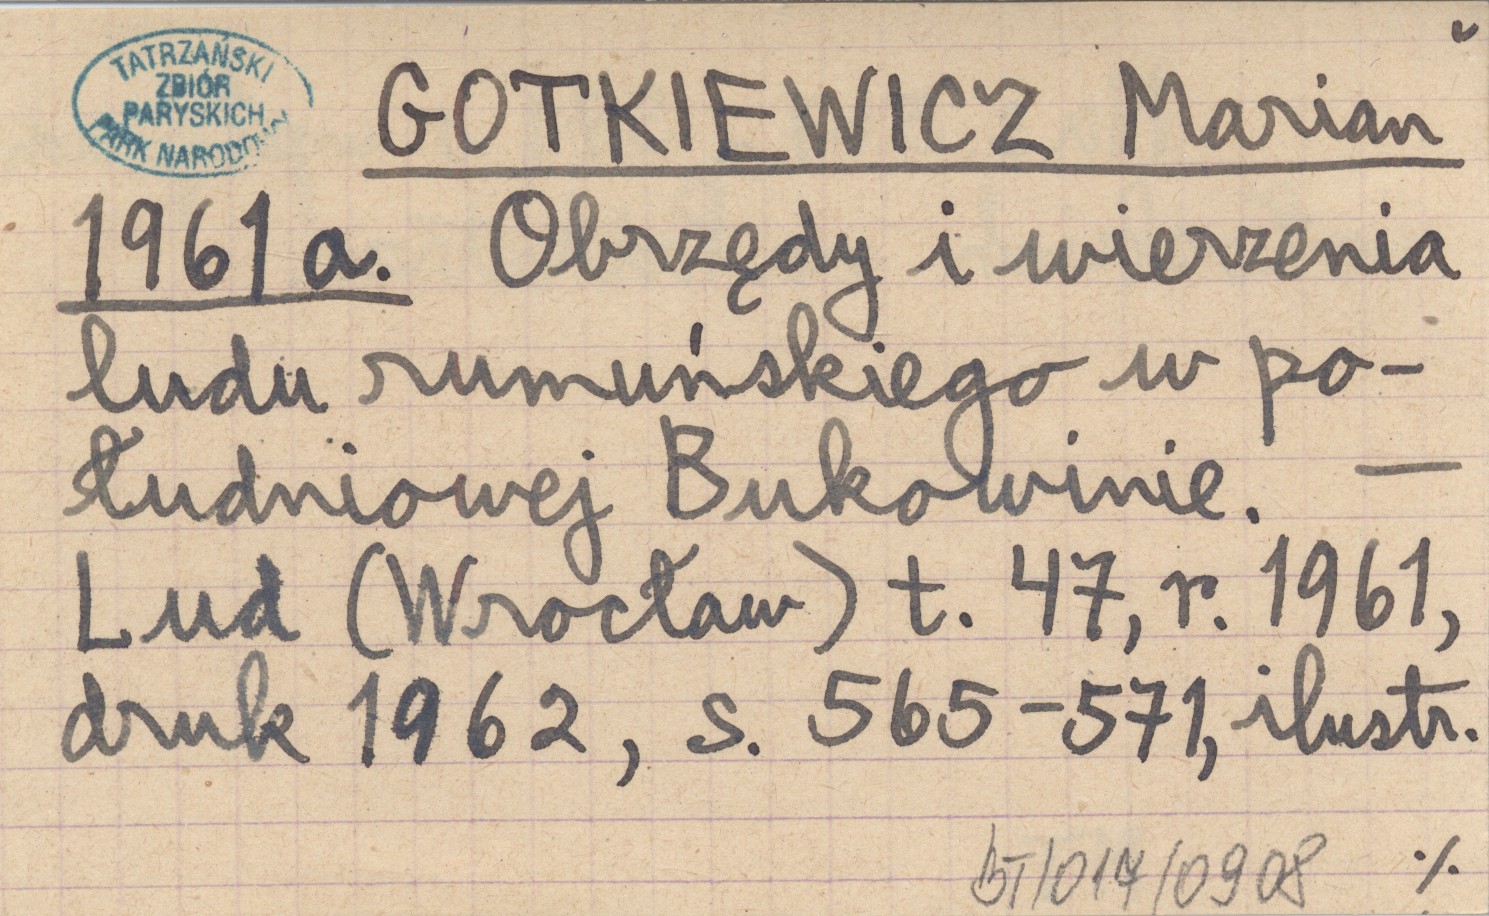 TATRZAŃSKI
ZBIÓR
PARYSKICH
PARK NARODOWY
GOTKIEWICZ Marian
1961 a. Obrzędy i wierzenia
ludu rumuńskiego w po-
łudniowej Bukowinie. —
Lud (Wrocław) t. 47, r. 1961,
druk 1962, s. 565-571, ilustr.
BT/017/0908 ./.